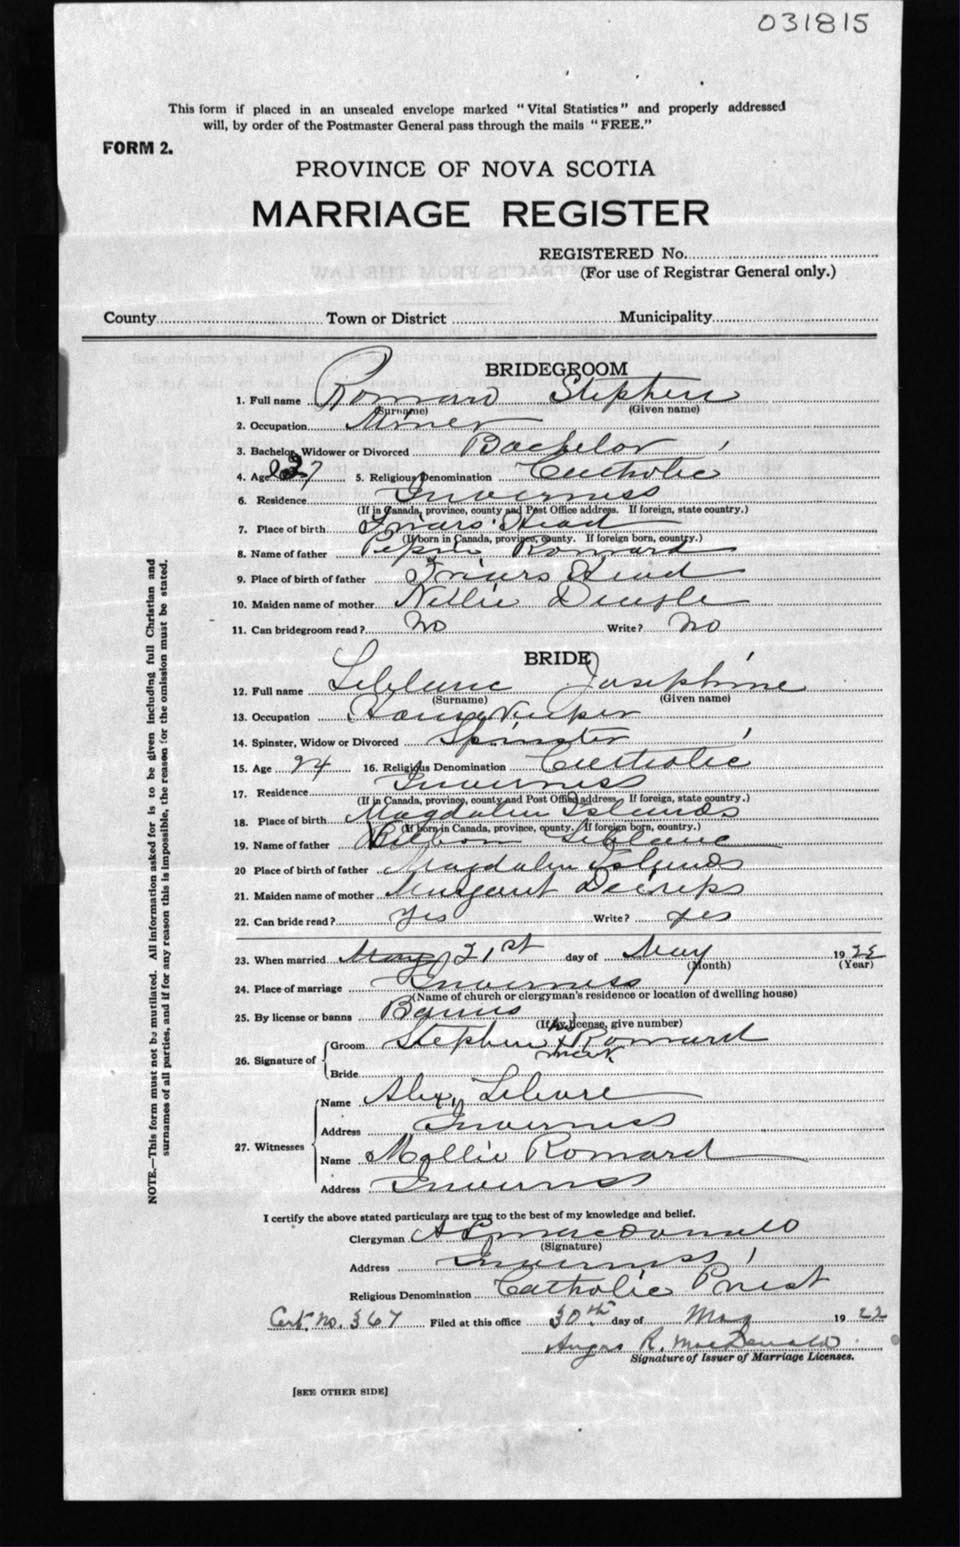 031815
This form if placed in an unsealed envelope marked "Vital Statistics" and properly addressed
will, by order of the Postmaster General pass through the mails "FREE."
FORM 2.
PROVINCE OF NOVA SCOTIA
MARRIAGE REGISTER
REGISTERED No.
(For use of Registrar General only.)
County Town or District Municipality
BRIDEGROOM
1. Full name Romard Stephen
(Surname) (Given name)
2. Occupation Miner
3. Bachelor, Widower or Divorced Bachelor
4. Age 27 5. Religious Denomination Catholic
6. Residence Inverness
(If in Canada, province, county and Post Office address. If foreign, state country.)
7. Place of birth Friars Head
(If born in Canada, province, county. If foreign born, country.)
8. Name of father Romard
9. Place of birth of father Friars Head
10. Maiden name of mother Nellie
11. Can bridegroom read? No Write? No
BRIDE
12. Full name Leblanc Josephine
(Surname) (Given name)
13. Occupation House Keeper
14. Spinster, Widow or Divorced Spinster
15. Age 24 16. Religious Denomination Catholic
17. Residence Inverness
(If in Canada, province, county and Post Office address. If foreign, state country.)
18. Place of birth Magdalen Islands
(If born in Canada, province, county. If foreign born, country.)
19. Name of father Leblanc
20 Place of birth of father Magdalen Islands
21. Maiden name of mother Margaret
22. Can bride read? Yes Write? yes
23. When married May 21st day of May 1922
(Month) (Year)
24. Place of marriage Inverness
(Name of church or clergyman's residence or location of dwelling house)
25. By license or banns Banns
(If by license, give number)
26. Signature of Groom Stephen his X mark Romard
Bride
27. Witnesses Name Alex
Address Inverness
Name Mollie Romard
Address Inverness
I certify the above stated particulars are true to the best of my knowledge and belief.
Clergyman MacDonald
(Signature)
Address Inverness
Religious Denomination Catholic Priest
Cert. No. 367 Filed at this office 30th day of May 1922
Angus R. MacDonald
Signature of Issuer of Marriage Licenses.
[SEE OTHER SIDE]
NOTE.—This form must not be mutilated. All information asked for is to be given including full Christian and
surnames of all parties, and if for any reason this is impossible, the reason for the omission must be stated.